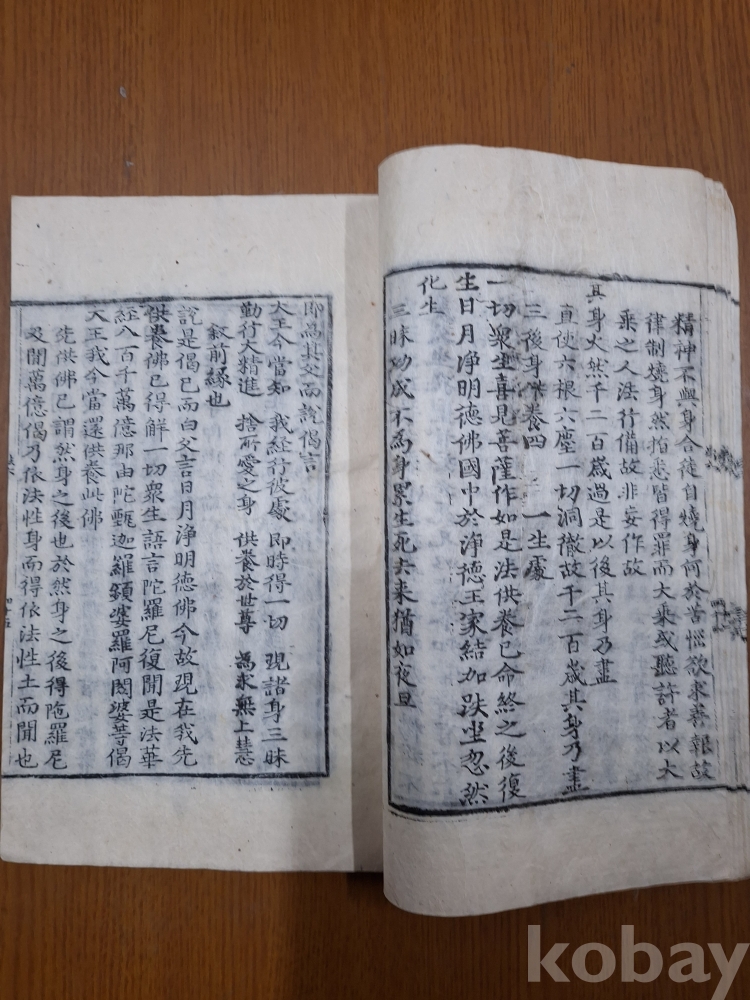 精神不與身合徒自燒身何於苦惱欲求善報故
律制燒身然指悉皆得罪而大乘或聽許者以大
乘之人法行備故非妄作故
其身火然千二百歲過是以後其身乃盡
直使六根六塵一切洞徹故千二百歲其身乃盡
三後身供養四 一生處
一切衆生喜見菩薩作如是法供養已命終之後復
生日月淨明德佛國中於淨德王家結加趺坐忽然
化生
三昧功成不為身累生死去來猶如夜旦
即爲其父而說偈言
大王今當知 我經行彼處 即時得一切 現諸身三昧
勤行大精進 捨所愛之身 供養於世尊 爲求無上慧
叙前緣也
說是偈已而白父言日月淨明德佛今故現在我先
供養佛已得解一切衆生語言陀羅尼復聞是法華
經八百千萬億那由陀甄迦羅頻婆羅阿閦婆等偈
大王我今當還供養此佛
先供佛已謂然身之後也於然身之後得陁羅尼
及聞萬億偈乃依法性身而得依法性土而聞也
kobay